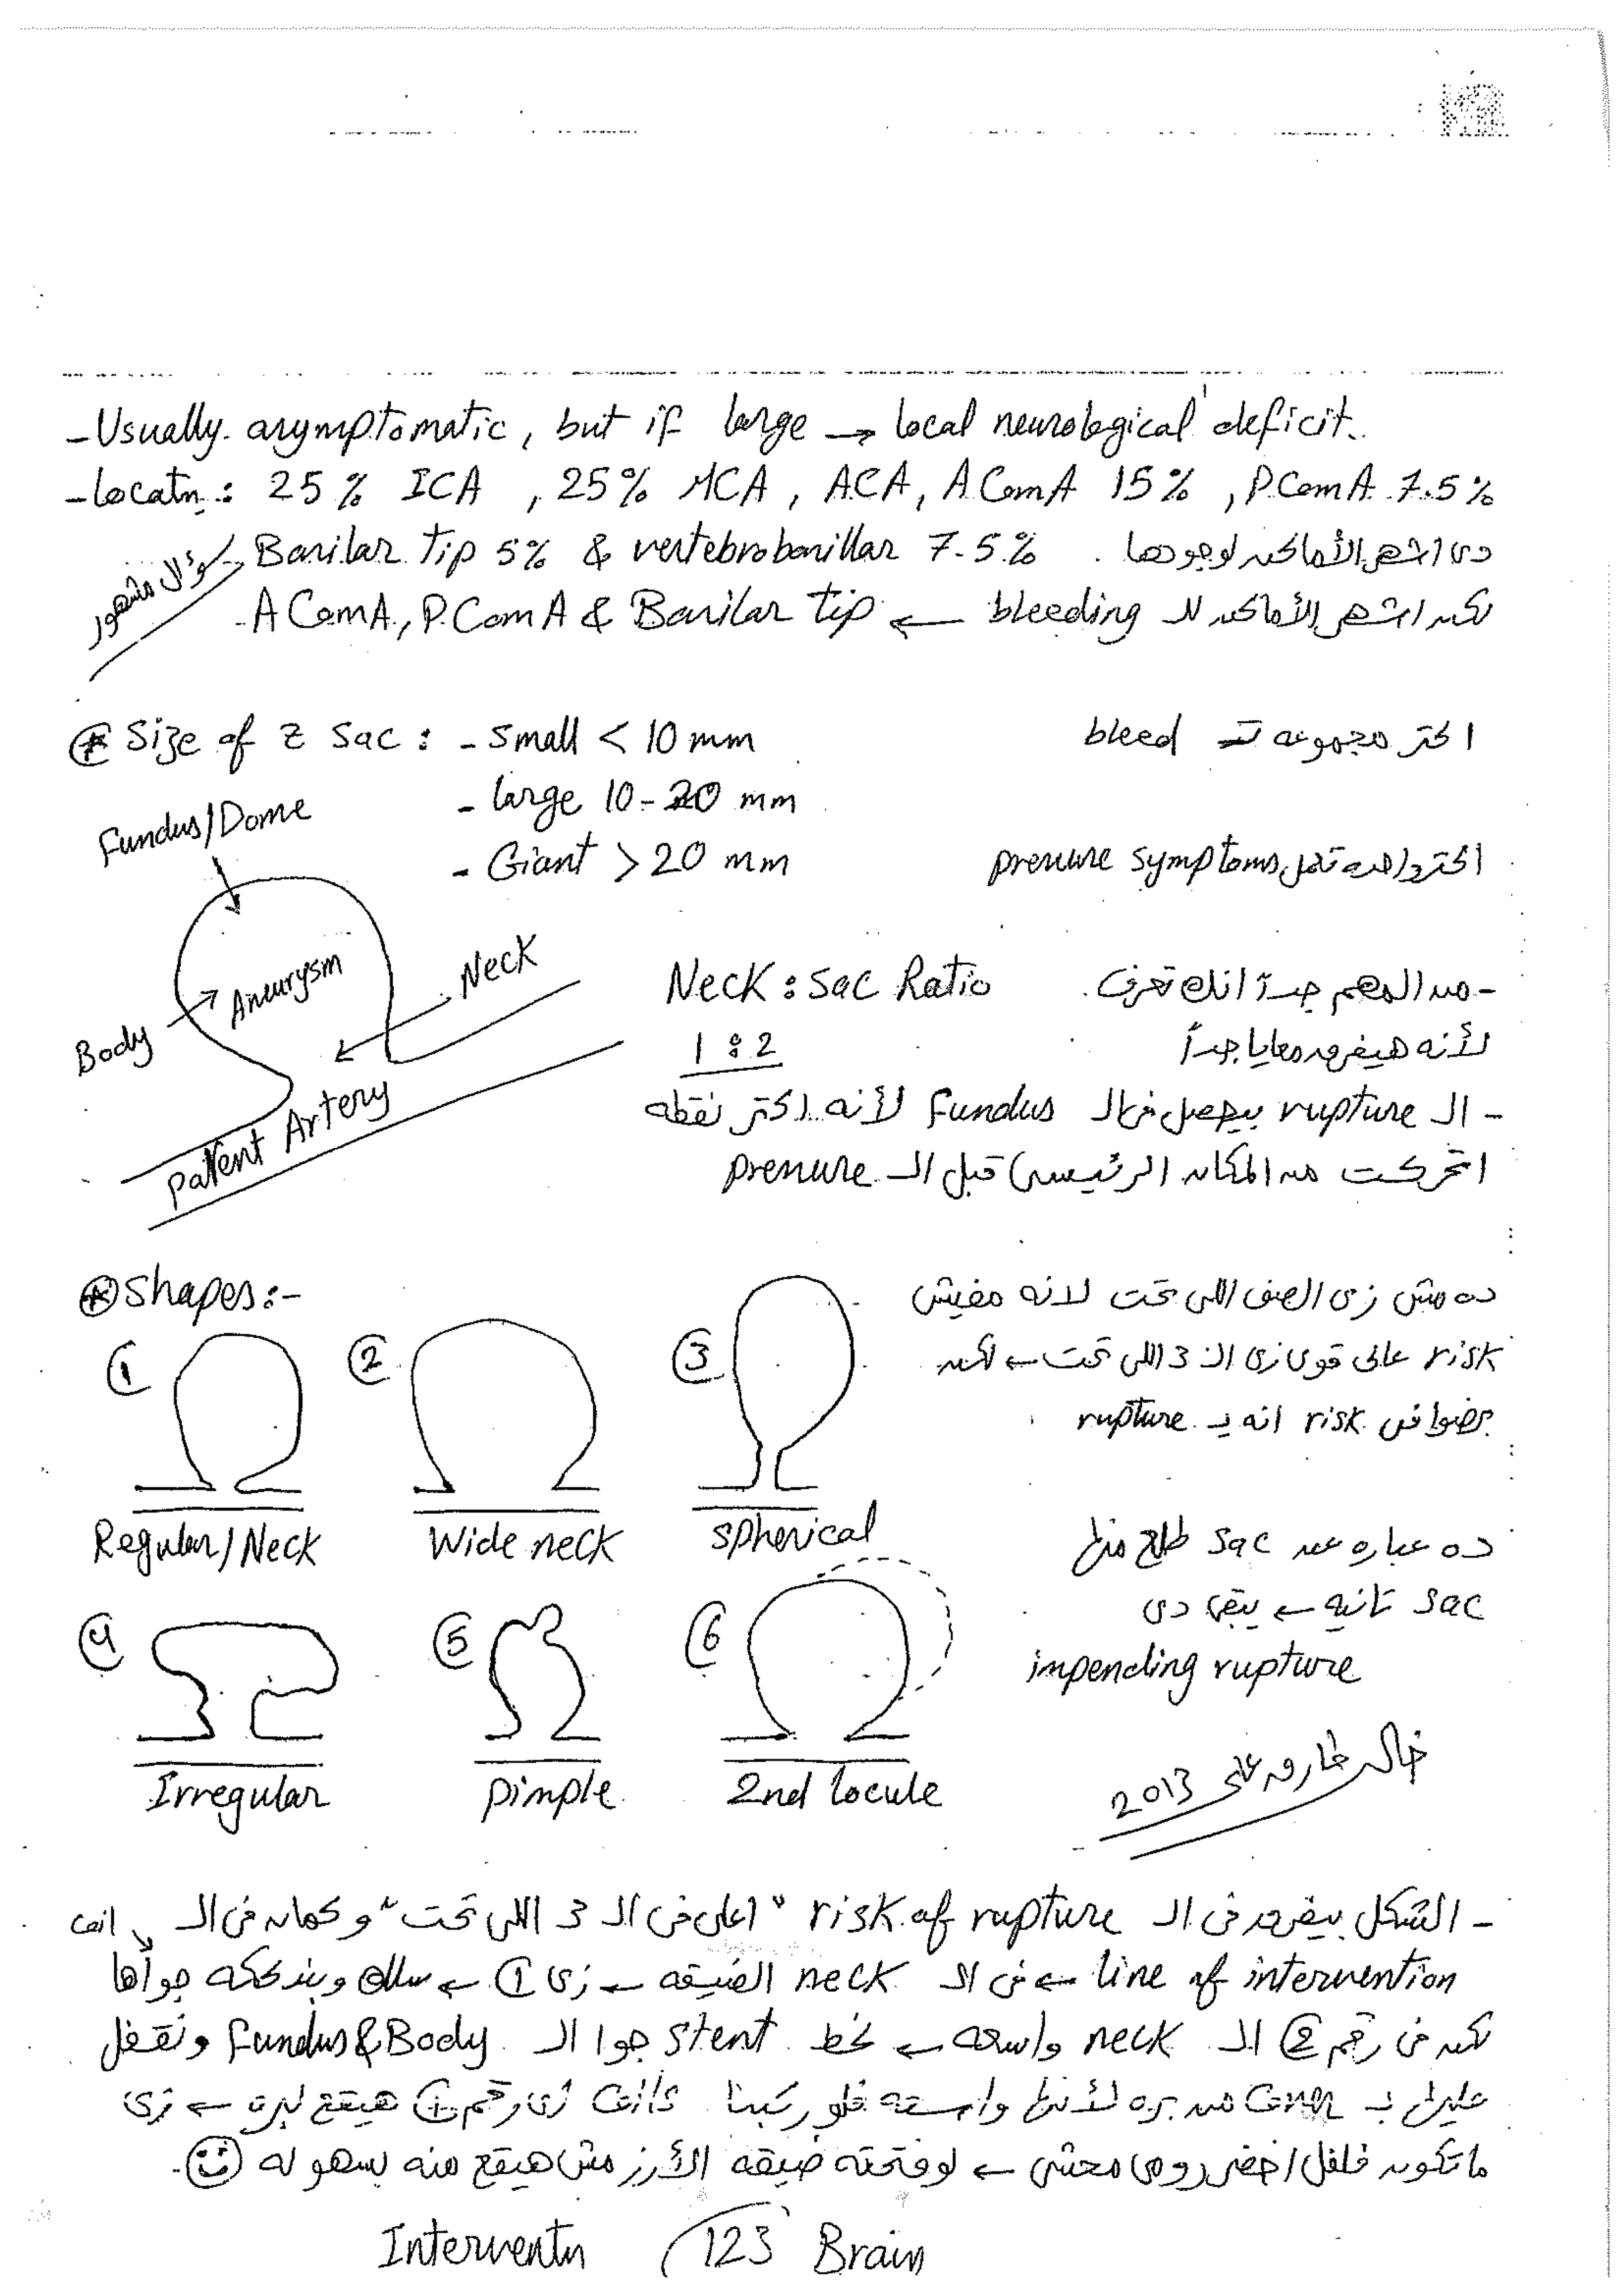 - Usually asymptomatic, but if large → local neurological deficit.
- Locatn: 25% ICA, 25% MCA, ACA, A ComA 15%, P.ComA 7.5%
Basilar Tip 5% & vertebrobasillar 7.5%. دى اشهر الأماكن لوجودها
سؤال مشهور
لكن اشهر الأماكن للـ bleeding ← A ComA, P.ComA & Basilar tip
⊛ Size of z Sac: - small < 10 mm اكتر مجموعه تـ bleed
- large 10-20 mm
- Giant > 20 mm اكتر واحده تعمل pressure symptoms
Fundus/Dome
Aneurysm
Neck
Body
Parent Artery
- من المهم جداً انك تعرف Neck : Sac Ratio
لأنه هيفرق معايا جداً 1 : 2
- الـ rupture بيحصل فى الـ Fundus لأنه اكتر نقطه
اتحركت من المكان الرئيسى قبل الـ pressure
⊛ Shapes:-
① ② ③
Regular/Neck Wide neck spherical
ده مش زى الصف اللى تحت لانه مفيش
risk عالى قوى زى الـ 3 اللى تحت ← لكن
برضوا فى risk انه يـ rupture
④ ⑤ ⑥
Irregular Pimple 2nd locule
ده عباره عن sac طلع منها
sac تانيه ← يبقى دى
impending rupture
خالد طارق على 2013
- الشكل بيفرق فى الـ risk of rupture "اعلى فى الـ 3 اللى تحت" وكمان فى الـ
line of intervention ← فى الـ neck الضيقه ← زى ① ← سلك وبندكه جواها
coil
لكن فى رقم ② الـ neck واسعه ← نحط stent جوا الـ Fundus & Body ونقفل
عليها بـ من بره لأنها واسعه فلو سيبنا coils زى رقم ① هيقع لبره ← زى
ما تكون فلفل اخضر رومى محشى ← لو فتحته ضيقه الأرز مش هيقع منه بسهوله
Interventn 123 Brain